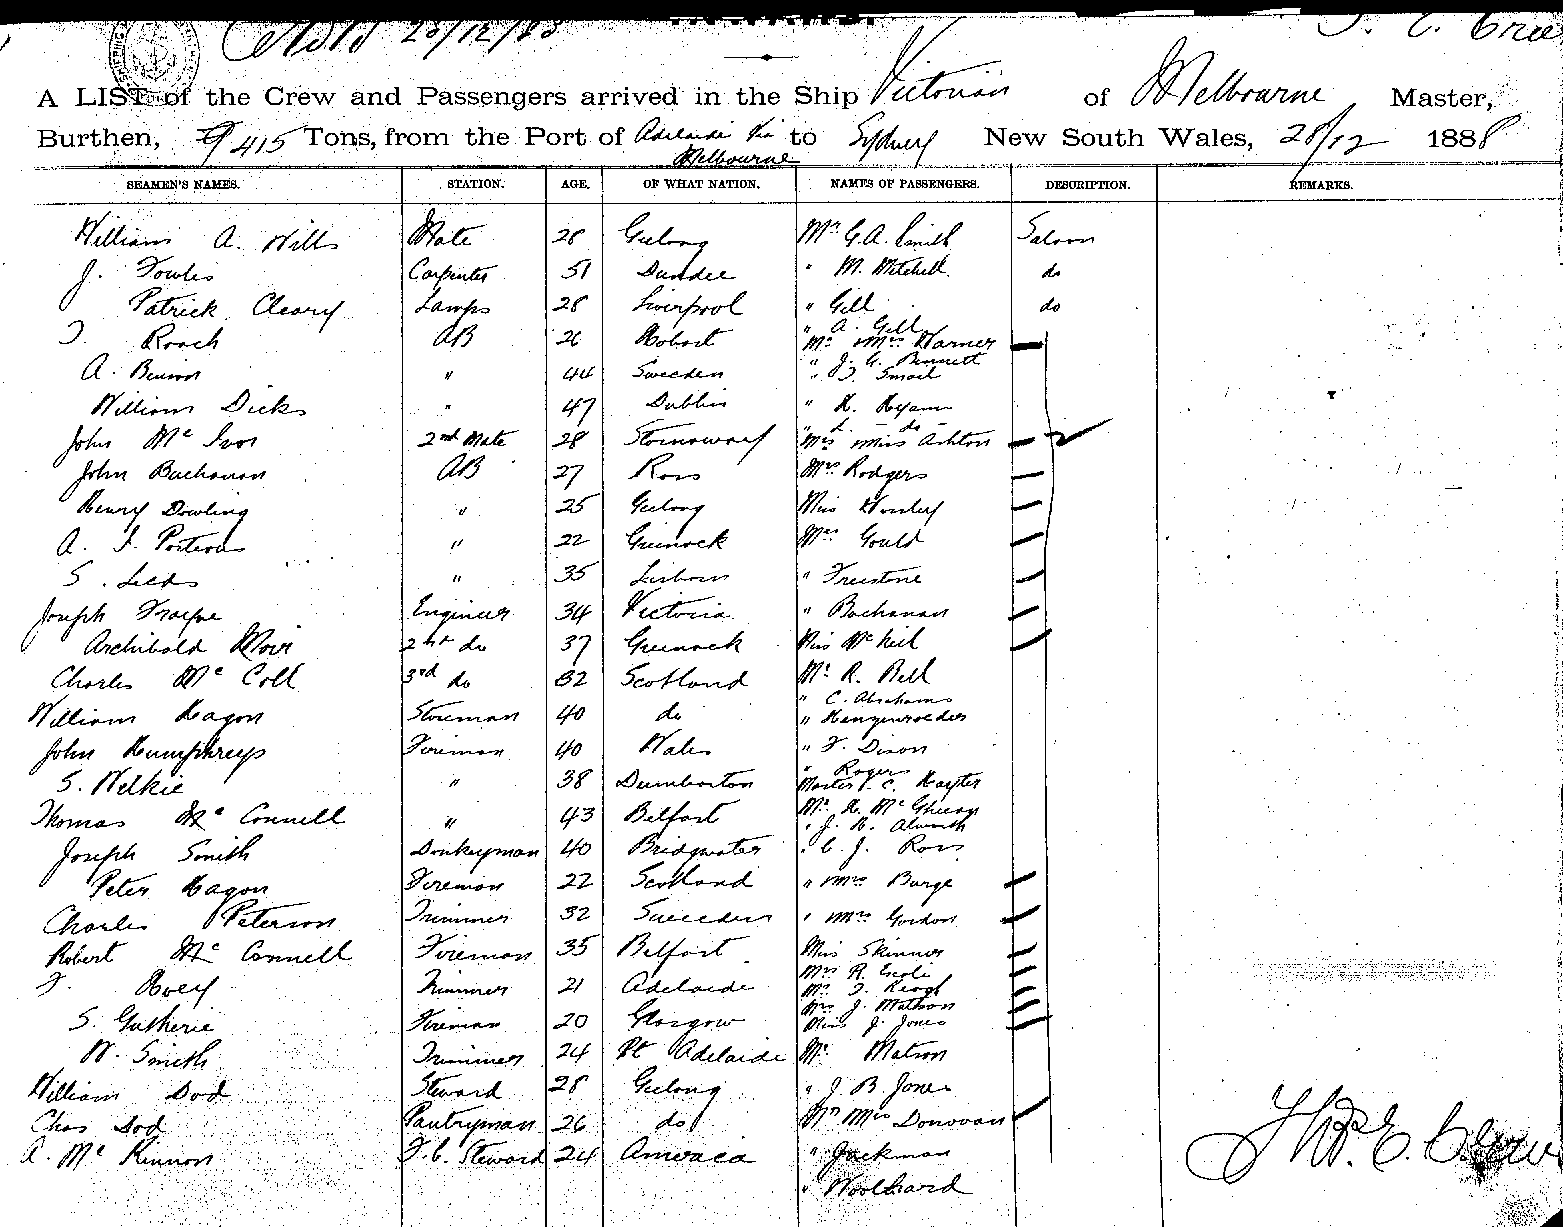 A LIST of the Crew and Passengers arrived in the Ship Victorian of Melbourne Master,
Burthen, 415 Tons, from the Port of Adelaide Via Melbourne to Sydney New South Wales, 28/12 1888
SEAMEN'S NAMES. STATION. AGE. OF WHAT NATION. NAMES OF PASSENGERS. DESCRIPTION. REMARKS.
William A. Wills Mate 28 Geelong Mr G.A. Smith Saloon
J. Fowles Carpenter 51 Dundee " M. Mitchell do
Patrick Cleary Lamps 28 Liverpool " Gill do
" A. Gill
T. Roach AB 26 Hobart Mr Mrs Warner
" J. G. Bennett
A. Benson " 44 Sweden " T. Smail
William Dicks " 47 Dublin " H. Hyam
" L. - do -
John Mc Ivor 2nd Mate 28 Stornoway Mrs Miss Ashton
John Buchanan AB 27 Ross Mrs Rodgers
Henry Dowling " 25 Geelong Miss Worsley
A. J. Porteous " 22 Greenock Mrs Gould
S. Leeds " 35 Lisbon " Freestone
Joseph Frayne Engineer 34 Victoria " Buchanan
Archibald Moir 2nd do 37 Greenock Miss McNeil
Charles Mc Coll 3rd do 32 Scotland Mr R. Bell
" C. Abrahams
William Hagon Storeman 40 do "
John Humphreys Fireman 40 Wales " F. Dixon
" Rogers
S. Wilkie " 38 Dumbarton Master V. C. Hayter
Mr. H. Mc
Thomas Mc Connell " 43 Belfast " J. H.
Joseph Smith Donkeyman 40 Bridgwater " C. J. Ross
Peter Hagon Fireman 22 Scotland " Mrs Burge
Charles Peterson Trimmer 32 Sweeden " Mrs Gordon
Robert Mc Connell Fireman 35 Belfast Miss Skinner
Mrs R.
F. Hoey Trimmer 21 Adelaide Mr. T. Keogh
Mrs J. Matson
S. Gutherie Fireman 20 Glasgow Miss J. Jones
W. Smith Trimmer 24 Pt Adelaide Mr Matson
William Dod Steward 28 Geelong " J B Jones
Chas Dod Pantryman 26 do Mr Mrs Donovan
A. Mc Kinnon F.C. Steward 24 America " Jackman
" Woollard